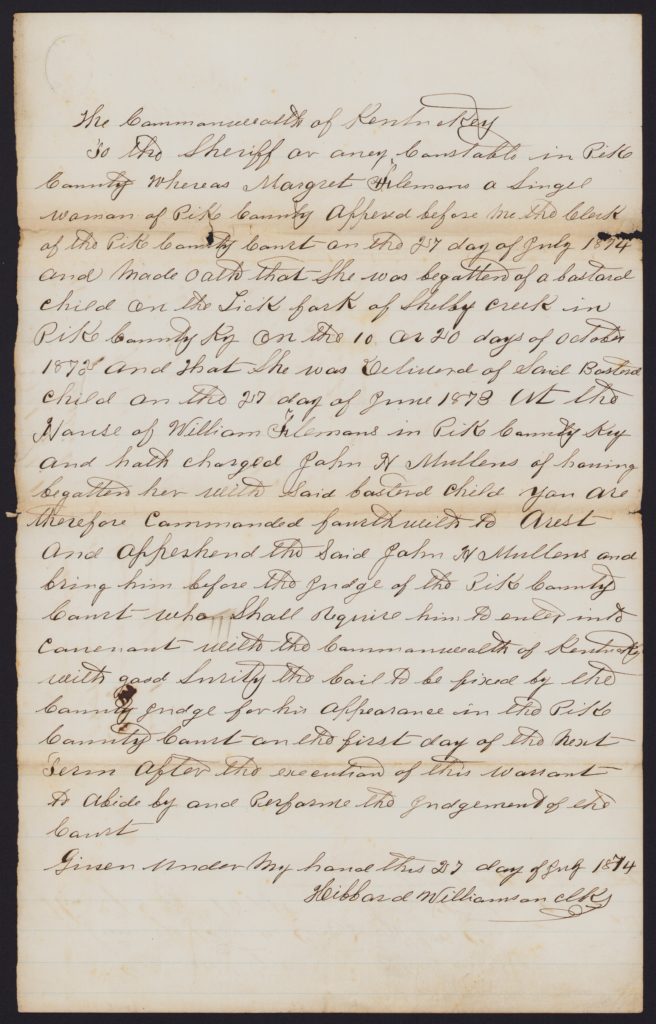 The Commonwealth of Kentuckey
To the Sheriff or aney Constable in Pike
County Whereas Margret Flemans a Singel
woman of Pike County Appeerd before me the Clerk
of the Pike County Court on the 27 day of July 1874
and Made oath that She was begatten of a bastard
child on the Lick fork of Shelby creek in
Pike County Ky on the 10. or 20 days of October
1872 and that She was Delivierd of Said Basterd
child on the 27 day of June 1873 At the
House of William Flemans in Pike County Key
and hath charged John H Mullens of having
begatten her with said basterd child you are
therefore Commanded fourthwith to Arest
And Appreshend the Said John H Mullens and
bring him before the Judge of the Pike County
Court whon Shall Require him to enter into
Covenant with the Commonwealth of Kentucky
with good Surity the bail to be fixed by the
County Judge for his Appearance in the Pike
County Court on the first day of the Next
Term After the execution of this warrant
to Abide by and Performe the Judgement of the
Court
Given under My hand this 27 day of July 1874
Hibbard Williamson clk